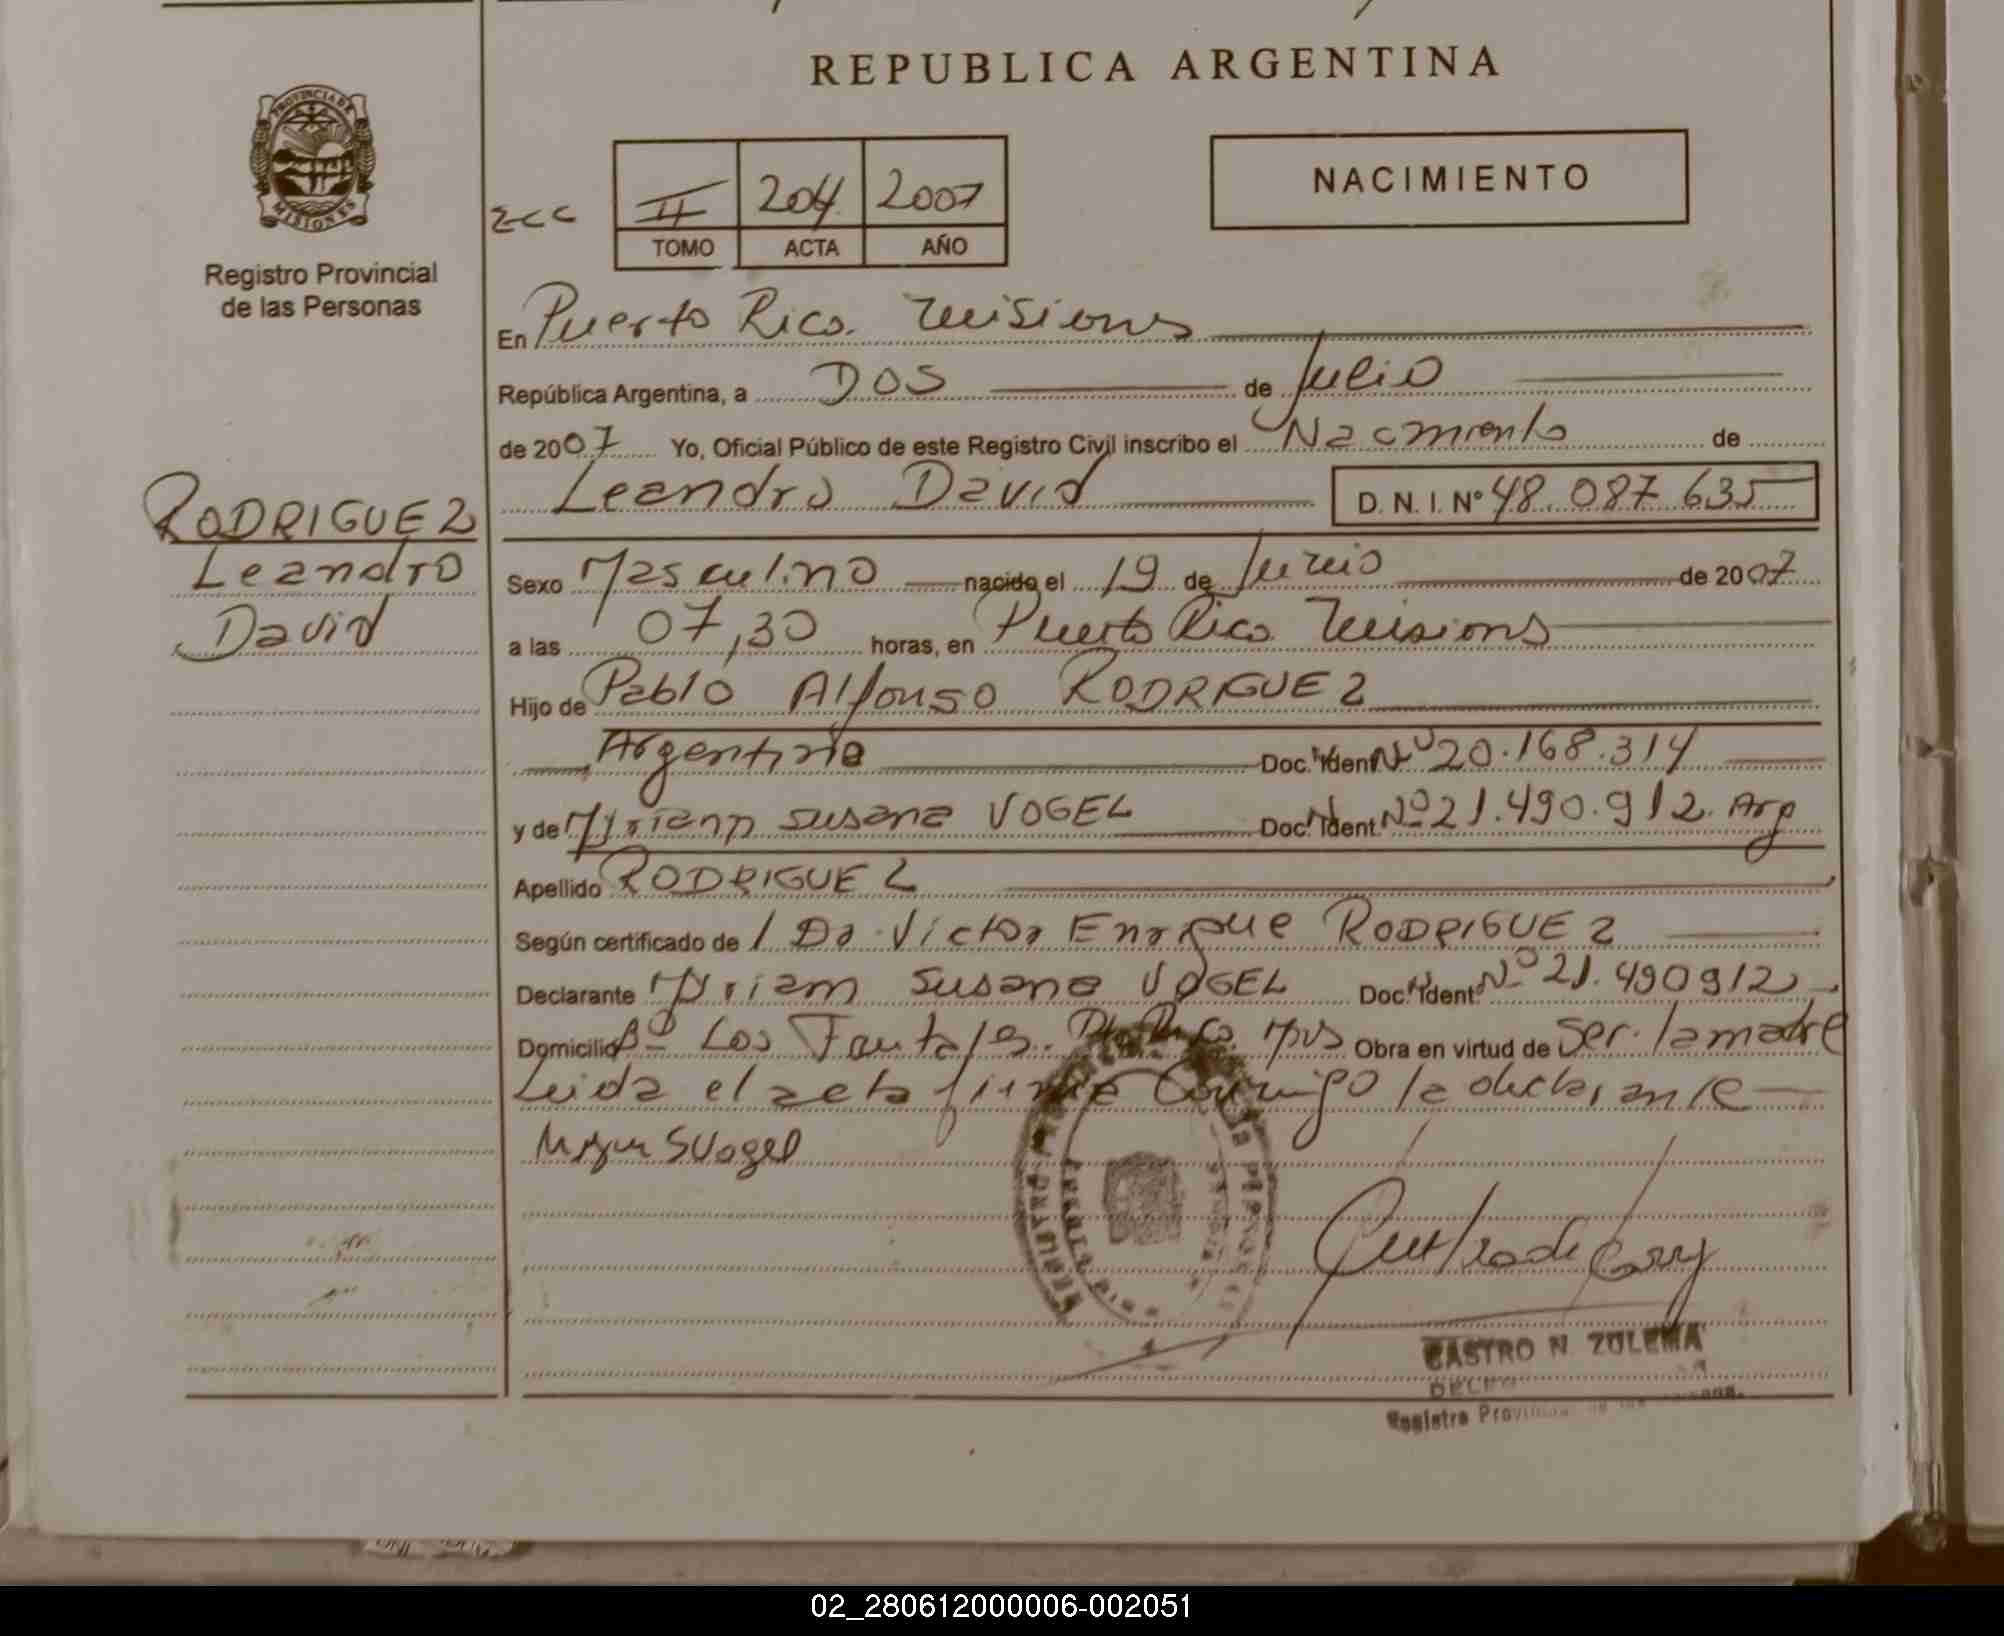 REPUBLICA ARGENTINA
PROVINCIA DE
MISIONES
Registro Provincial
de las Personas
II 204 2007
TOMO ACTA AÑO
NACIMIENTO
En Puerto Rico. Misiones
República Argentina, a DOS de Julio
de 2007 Yo, Oficial Público de este Registro Civil inscribo el Nacimiento de
Leandro David D. N. I. Nº 48.087.635
RODRIGUEZ
Leandro
David
Sexo Masculino nacido el 19 de Junio de 2007
a las 07,30 horas, en Puerto Rico Misiones
Hijo de Pablo Alfonso RODRIGUEZ
Argentina Doc. Ident. Nº 20.168.314
y de Myriam Susana VOGEL Doc. Ident. Nº 21.490.912. Arg
Apellido RODRIGUEZ
Según certificado de Dr. Victor Enrique RODRIGUEZ
Declarante Myriam Susana VOGEL Doc. Ident. Nº 21.490912
Domicilio Bº Los Pto Rico. Mns Obra en virtud de Ser la madre
Leida el acta firma Conmigo la declarante
SVogel
CASTRO N. ZULEMA
Registro
02_280612000006-002051